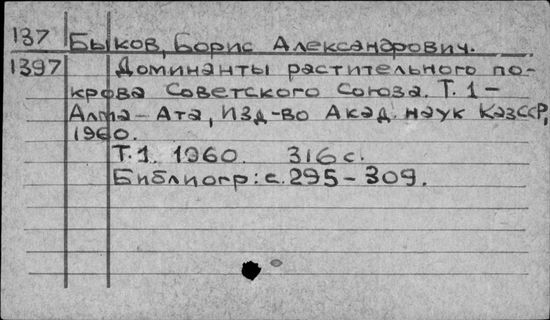 137 Быков, Борис Александрович.
1397 Доминанты растительного по-
крова Советского Союза. Т. 1-
Алма-Ата, Изд-во Акад. наук КазССР,
1960.
Т. 1. 1960. 316 с.
Библиогр: с. 295-309.